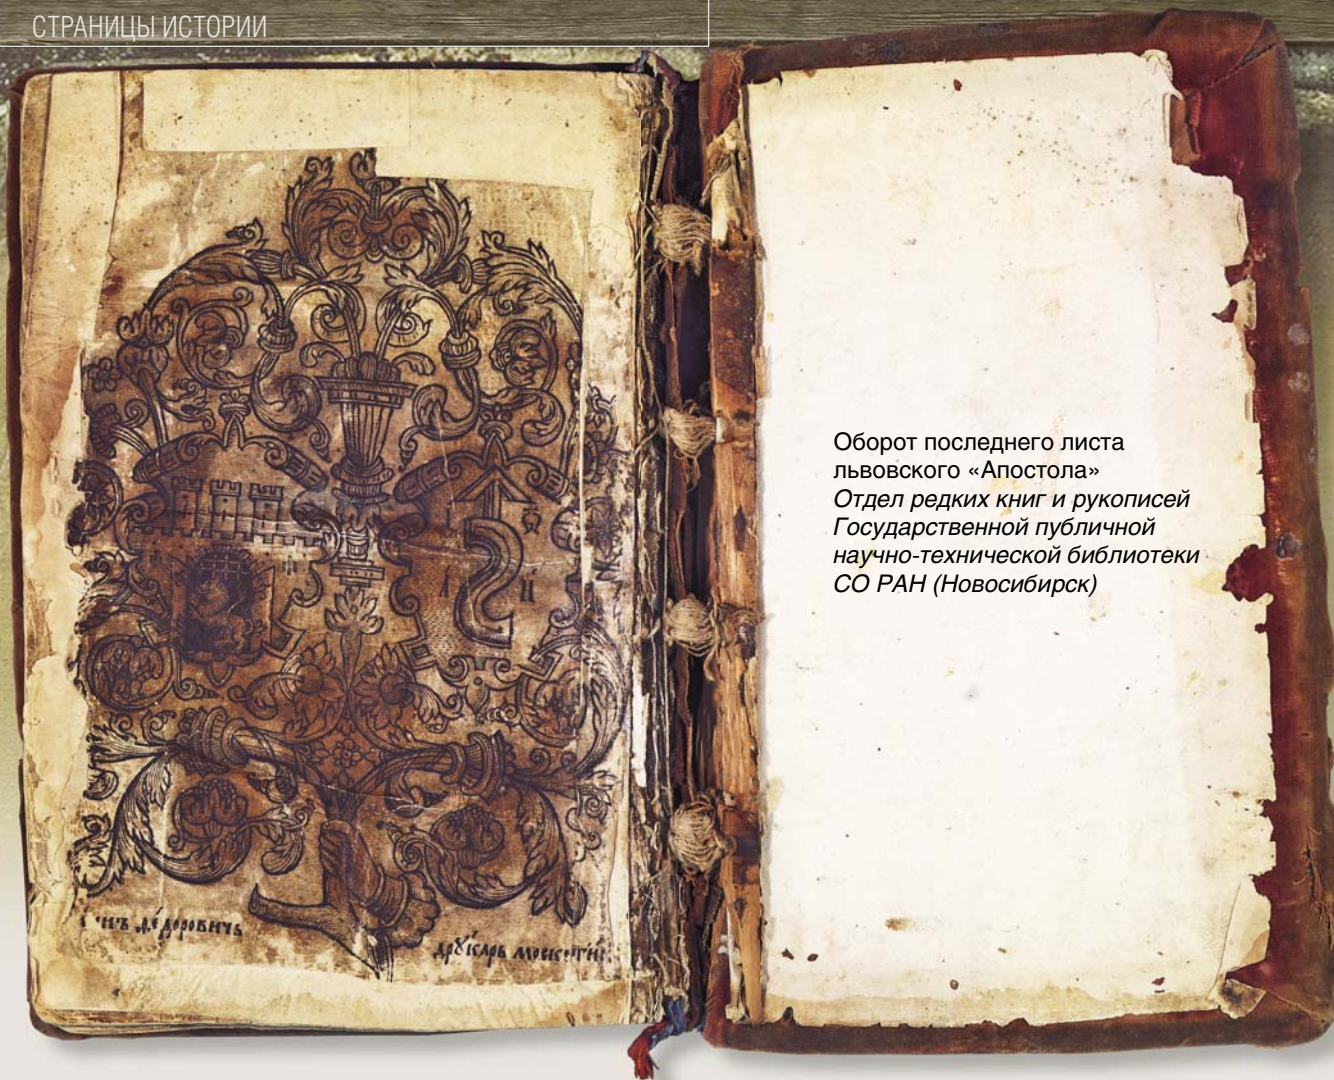 СТРАНИЦЫ ИСТОРИИ
Оборот последнего листа
львовского «Апостола»
Отдел редких книг и рукописей
Государственной публичной
научно-технической библиотеки
СО РАН (Новосибирск)
друкарь